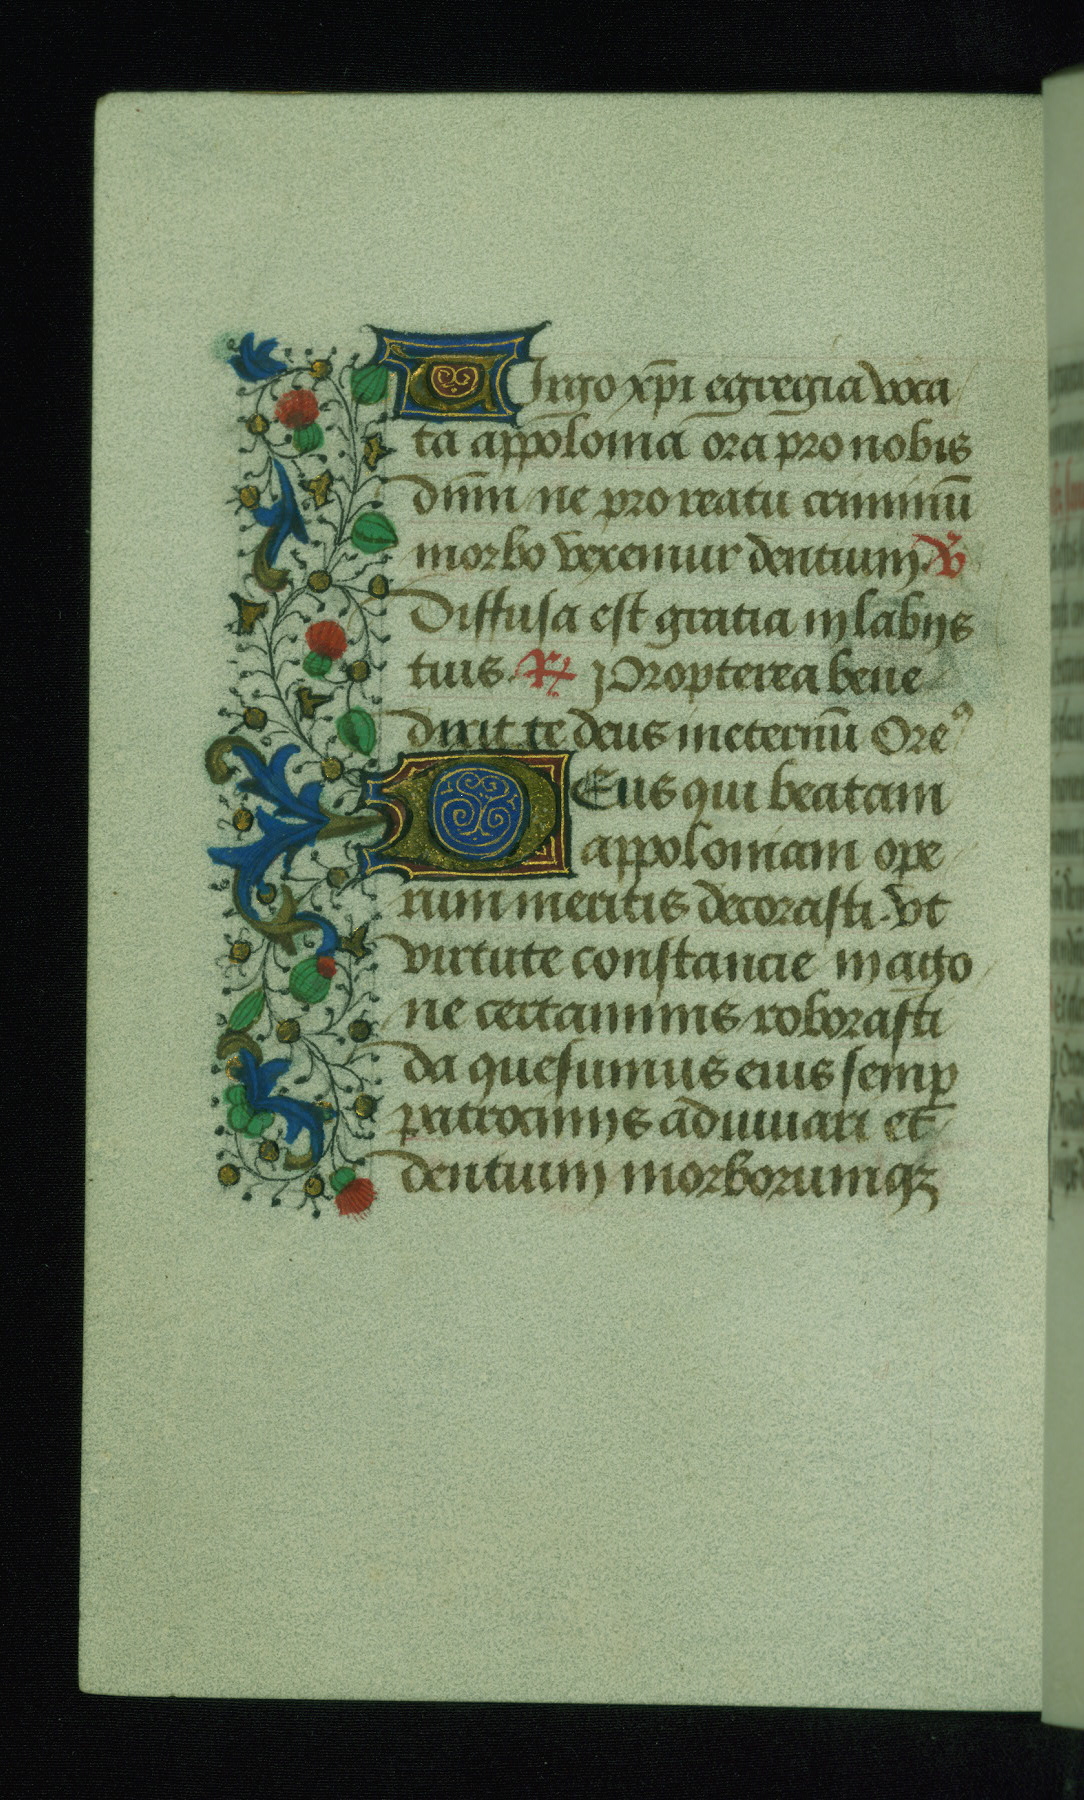 Virgo xp̄i egregia voca
ta appolonia ora pro nobis
dn̄m ne pro reatu criminū
morbo vexemur dentium. ℣
Diffusa est gratia in labijs
tuis. ℟ Propterea bene
dixit te deus in eternū Oreꝰ
DEus qui beatam
appoloniam ope
rum meritis decorasti. vt
virtute constancie in ago
ne certaminis roborasti
da quesumus eius semp
patrocinijs adiuuari et
dentium morborumqꝫ